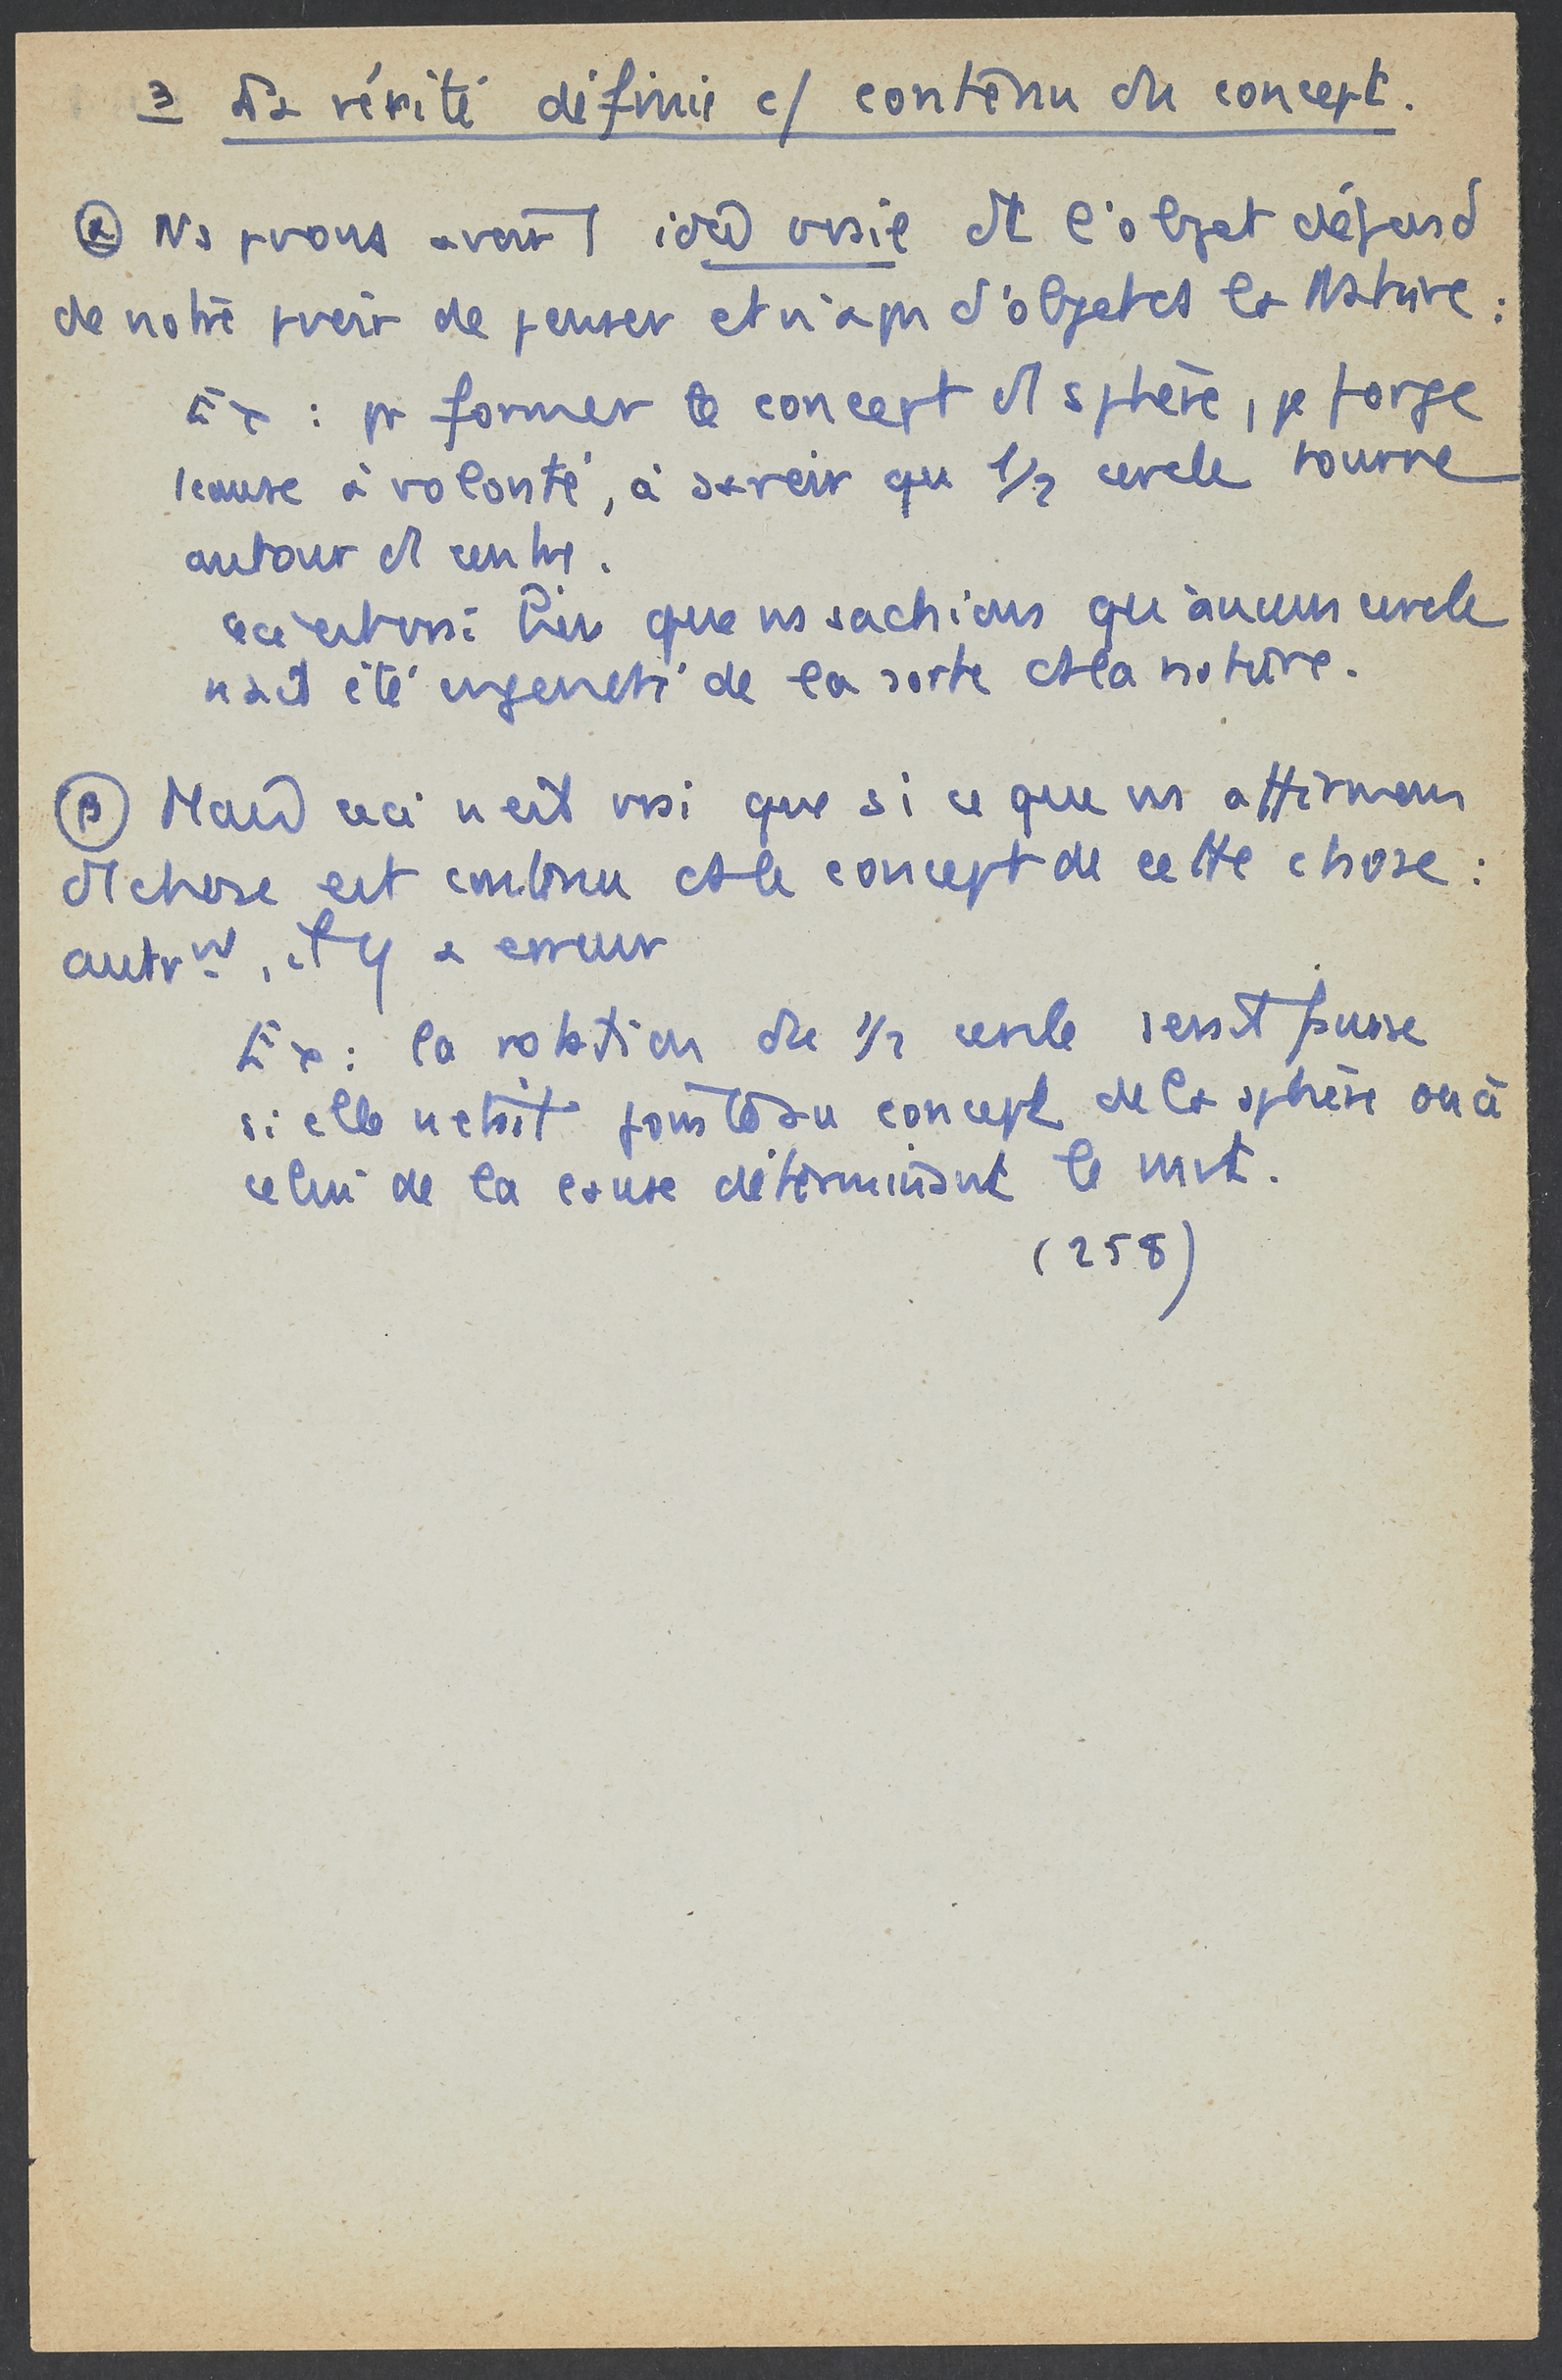 3 La vérité définie c/ contenu du concept.
α Ns pvons avoir 1 idée vraie dt l'objet dépend
de notre pvoir de penser et n'a pr d'objet ds la Nature :
Ex : pr former le concept d1 sphère, je forge
1 cause à volonté, à savoir qu 1/2 cercle tourne
autour d1 centre.
ceci est vrai bien que ns sachions qu'aucun cercle
n'ait été engendré de la sorte ds la nature.
β Mais ceci n'est vrai que si ce que ns affirmons
d1 chose est contenu ds le concept de cette chose :
autrmt, il y a erreur
Ex : la rotation du 1/2 cercle serait fausse
si elle n'était jointe au concept de la sphère ou à
celui de la cause déterminant le mvt.
(258)